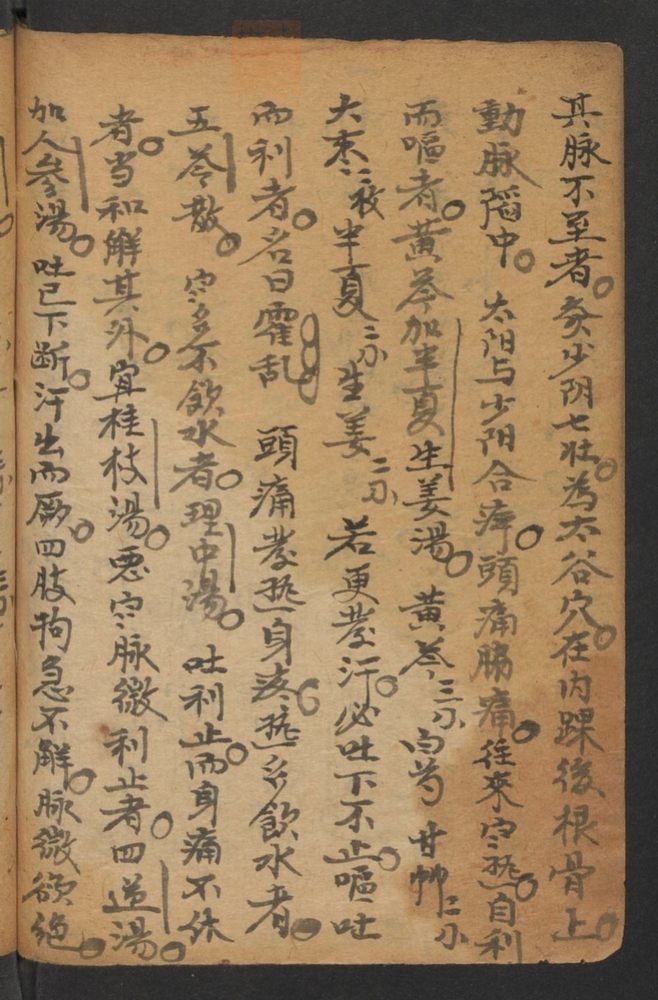 其脉不至者灸少阴七壮為太谷穴在内踝後根骨上
動脉陷中 太阳与少阳合病頭痛腸痛往來寒热自利
而嘔者黄芩加半夏生姜湯 黄芩三刄 白芍 甘艸二刄
大枣二枚 半夏二刄 生姜二刄 若更發汗必吐下不止嘔吐
而利者名曰霍乱 頭痛發热身疼热多飲水者
五苓散 寒多不飲水者理中湯 吐利止而身痛不休
者当和解其外宜桂枝湯 惡寒脉微利止者四逆湯
加人参湯 吐已下断汗出而厥四肢拘急不解脉微欲绝